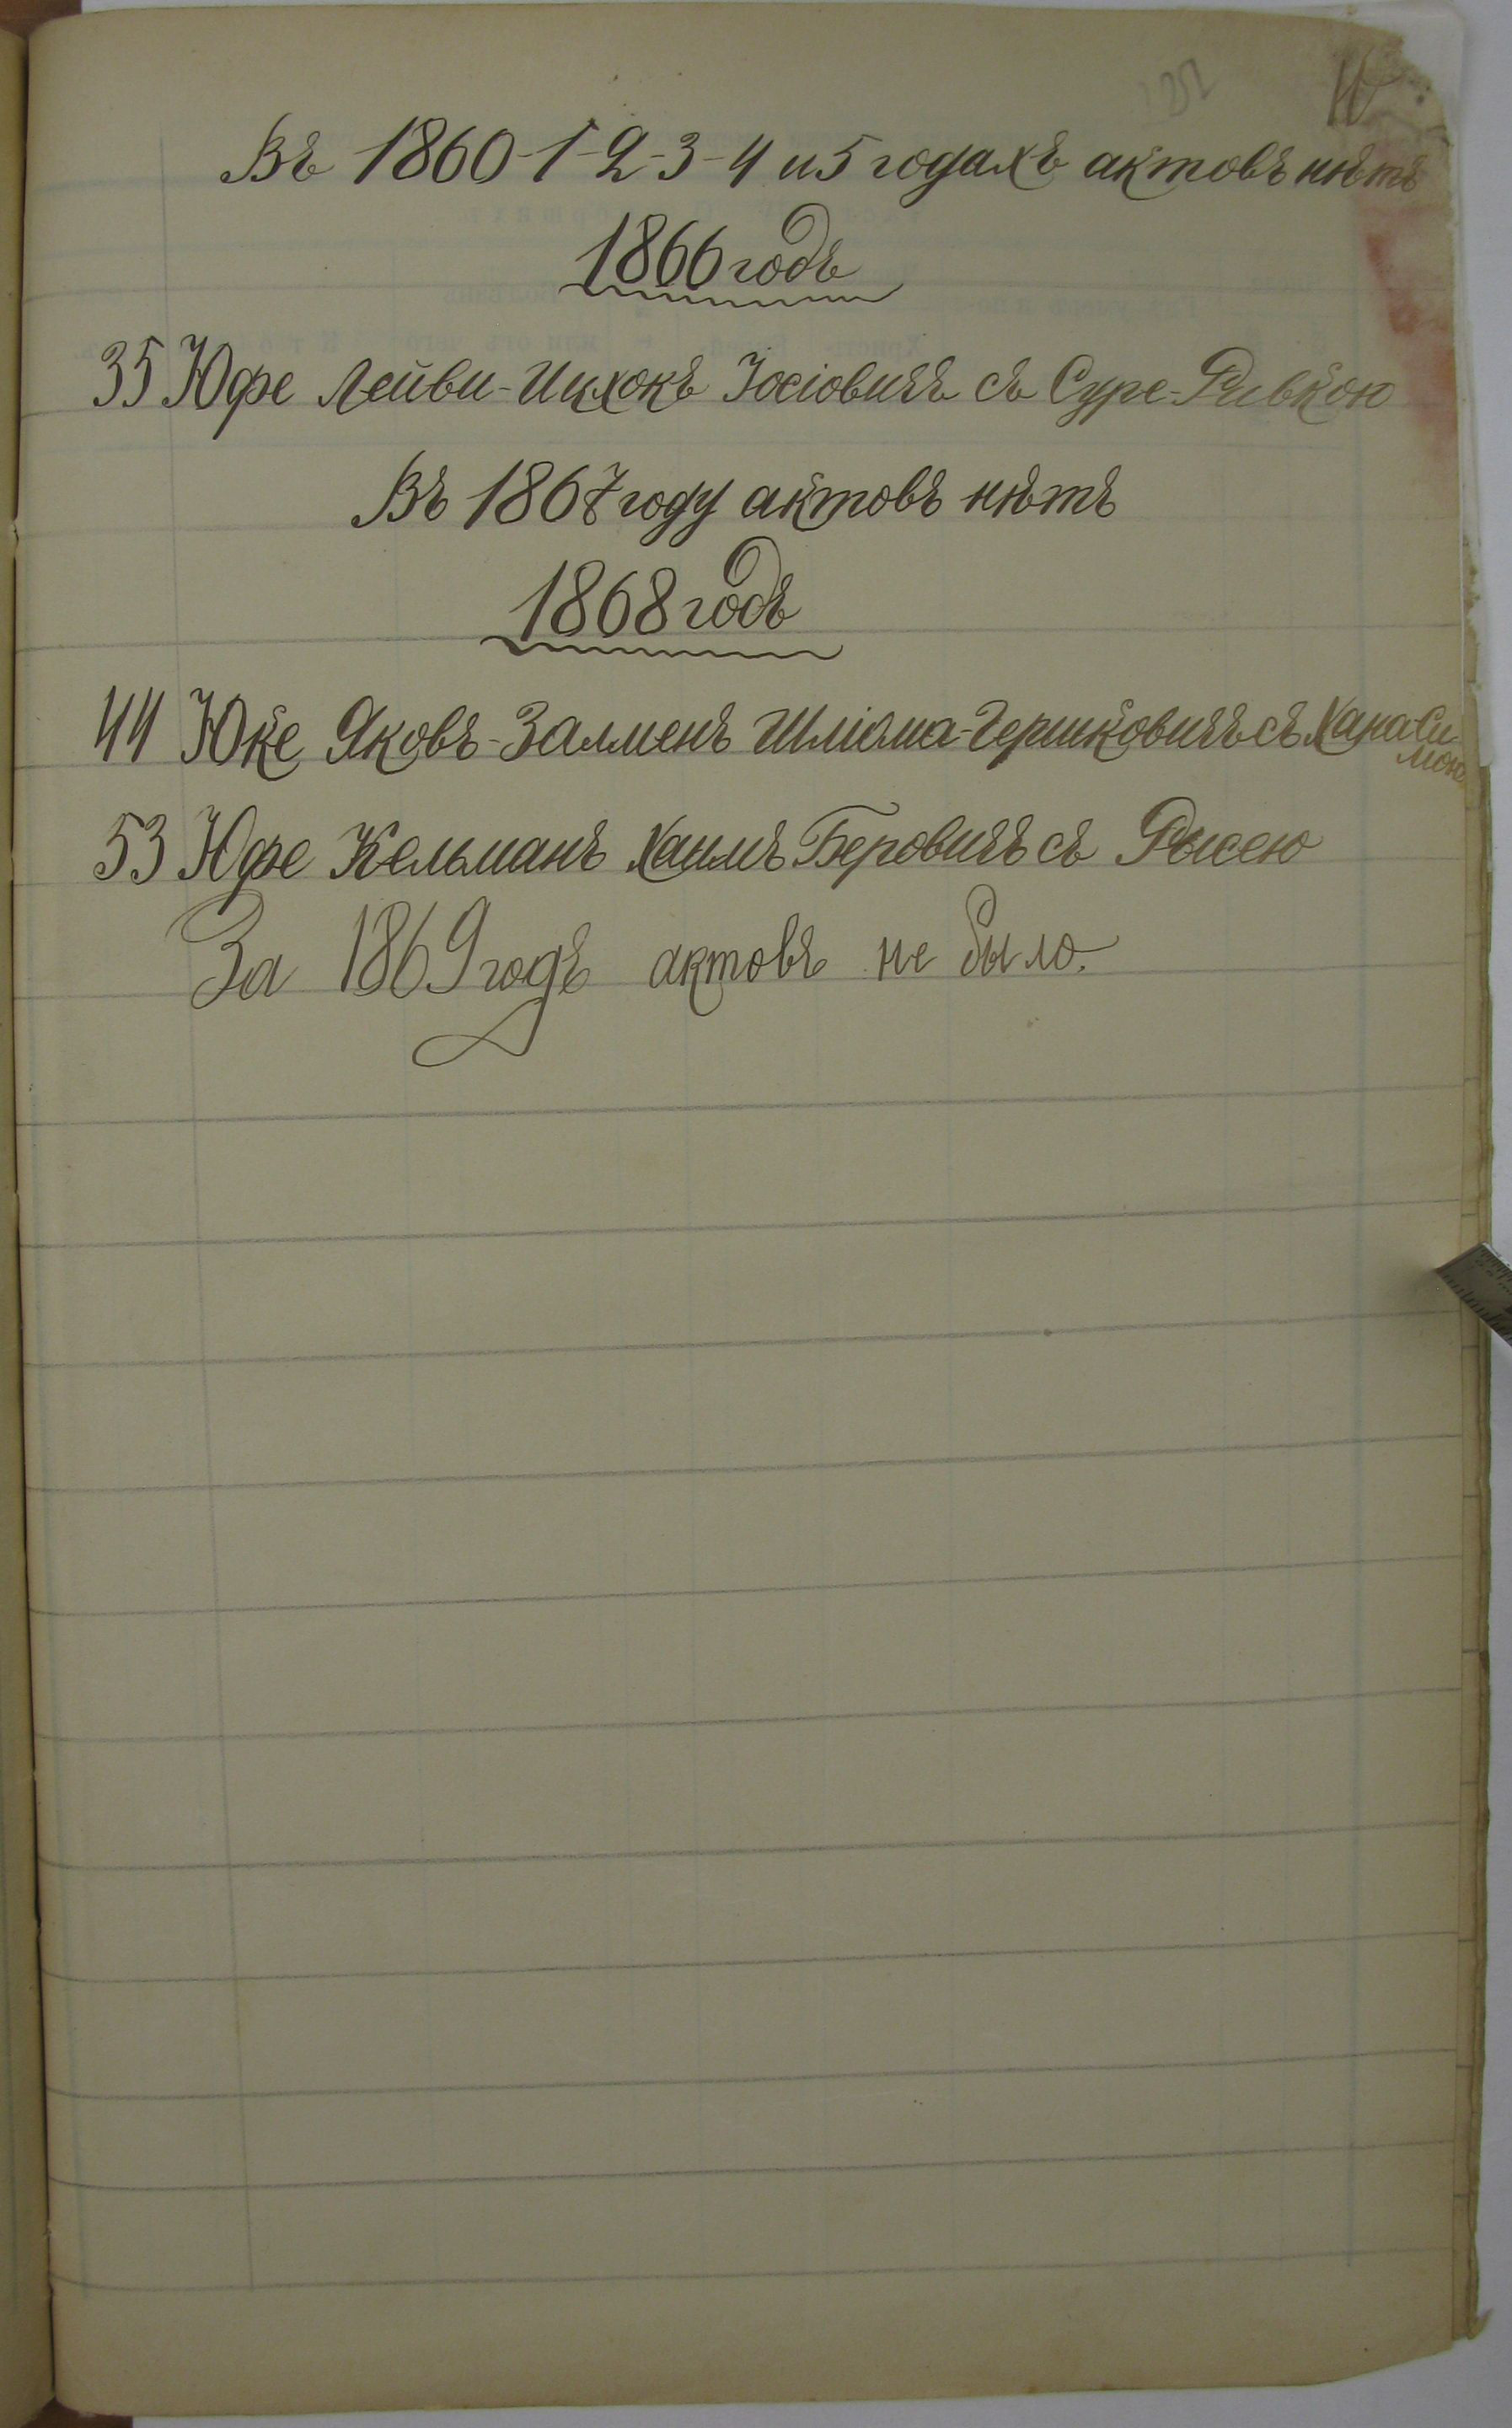 Ю
Въ 1860-1-2-3-4 и 5 годахъ актовъ нѣтъ
1866 годъ
35 Юфе Лейви-Ицхокъ Іосіовичъ съ Суре-Ривкою
Въ 1867 году актовъ нѣтъ
1868 годъ
44 Юке Яковъ-Залменъ Шліома-Гершковичъ съ Хана Си-
мою
53 Юфе Кельманъ Хаимъ Беровичъ съ Рысею
За 1869 годъ актовъ не было.